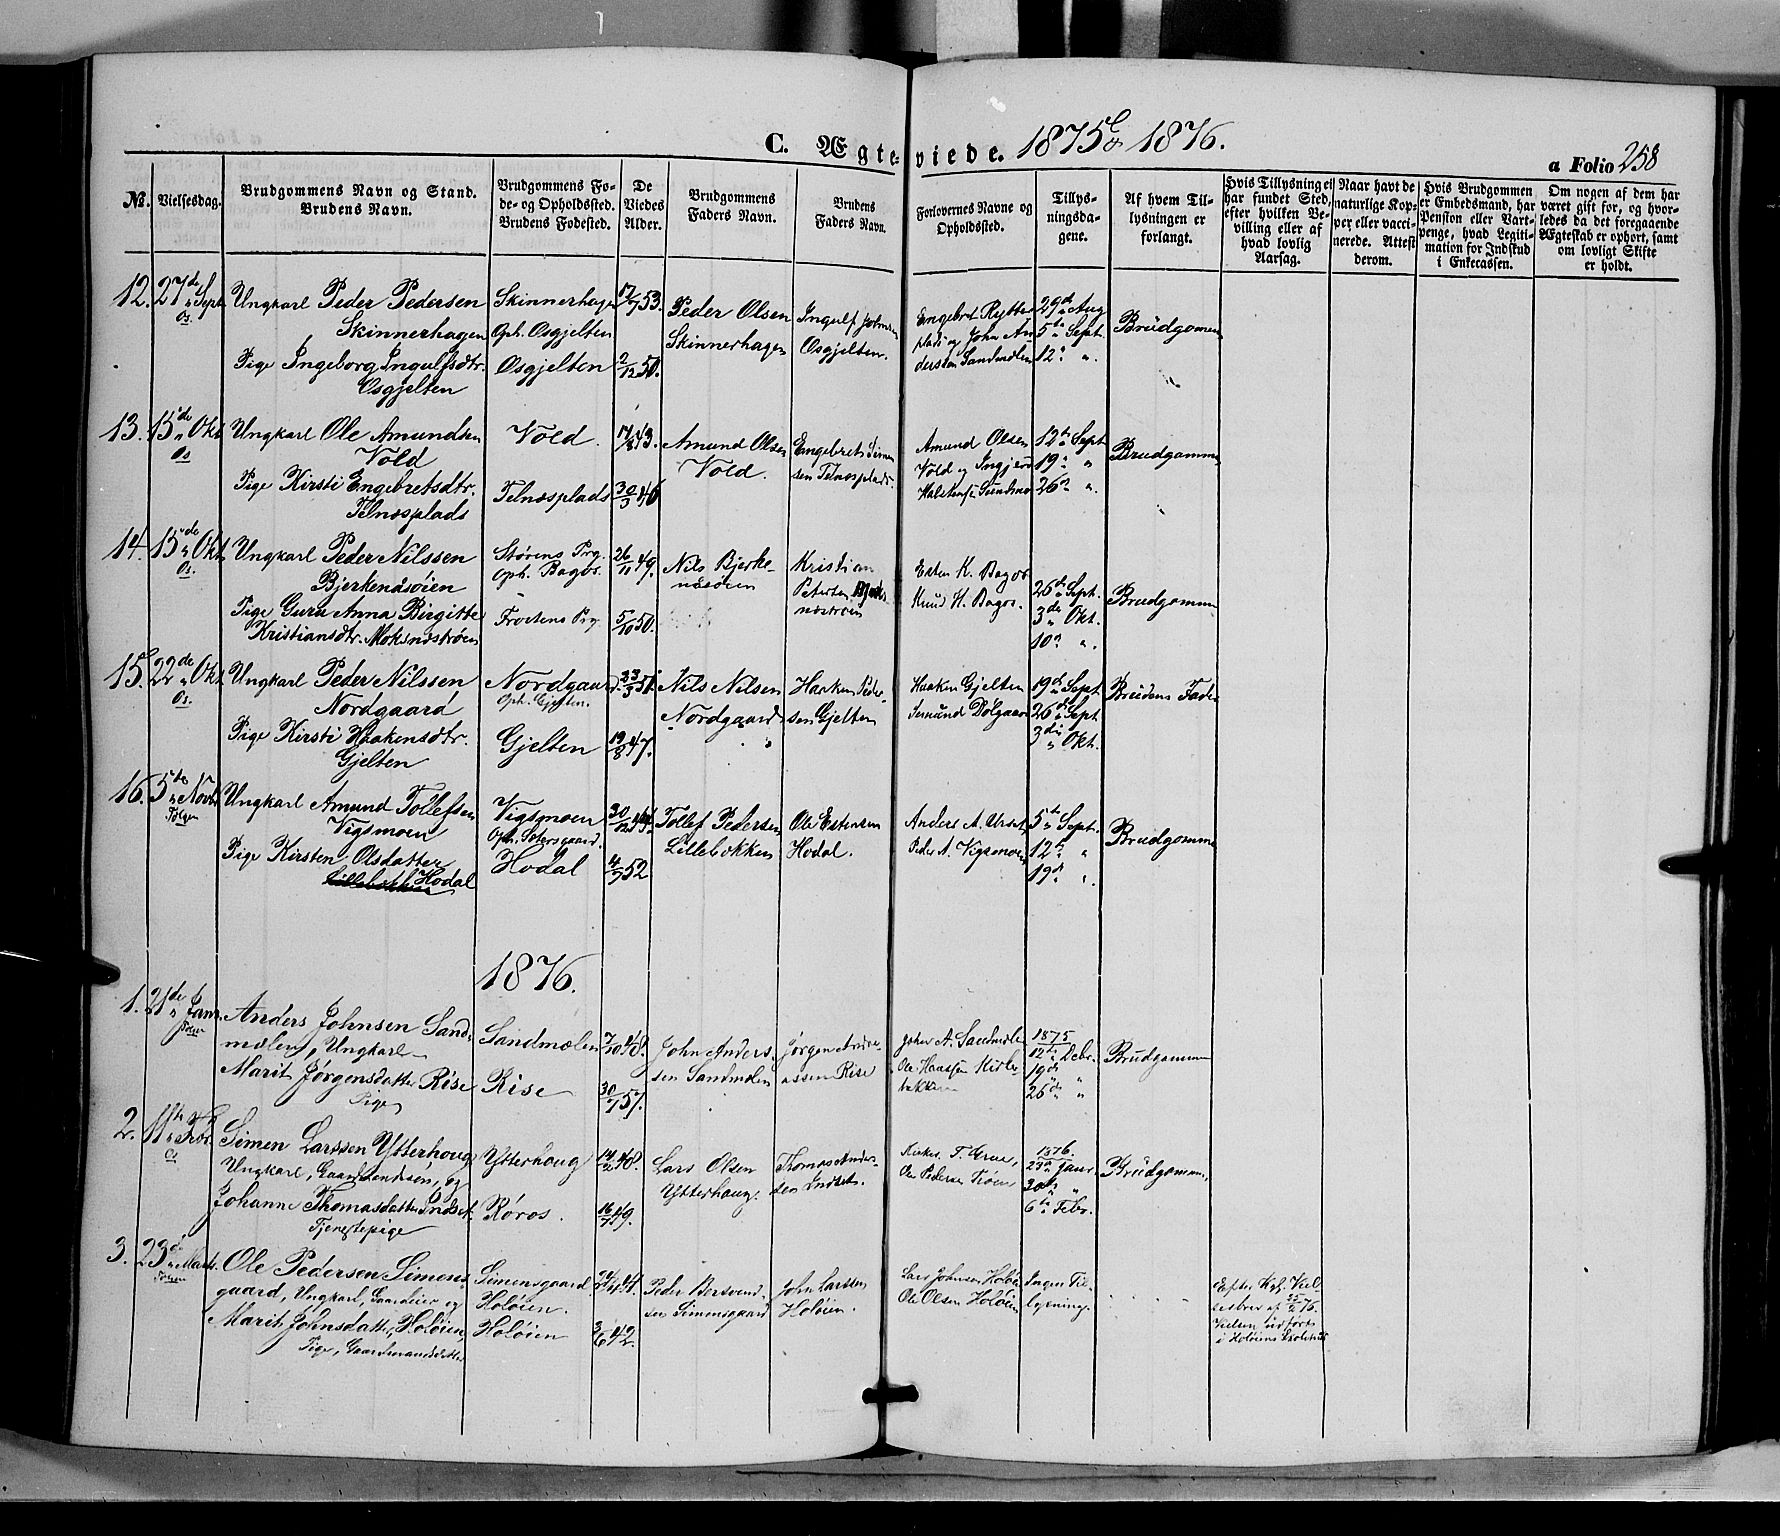 C. Ægteviede. 1875 & 1876.
a Folio 258
№.
Vielsesdag.
Brudgommens Navn og Stand.
Brudens Navn.
Brudgommens Fø-
de- og Opholdssted.
Brudens Fødested.
De
Viedes
Alder.
Brudgommens
Faders Navn.
Brudens
Faders Navn.
Forlovernes Navne og
Opholdssted.
Tillys-
ningsda-
gene.
Af hvem Til-
lysningen er
forlangt.
Hvis Tillysning ei
har fundet Sted,
efter hvilken Be-
villing eller af
hvad lovlig
Aarsag.
Naar havt de
naturlige Kop-
per eller vacci-
nerede. Attest
derom.
Hvis Brudgommen
er Embedsmand, har
Pension eller Vart-
penge, hvad Legiti-
mation for Indskud
i Enkecassen.
Om nogen af dem har
været gift før, og hvor-
ledes da det foregaaende
Ægteskab er ophørt, samt
om lovligt Skifte
er holdt.
12. 27de Sept. Os.
Ungkarl Peder Pedersen
Skinnerhagen
Pige Ingeborg Ingulfsdtr.
Osgjelten
Skinnerhagen
Oph. Osgjelten
Osgjelten
17/7 53.
2/12 50.
Peder Olsen
Skinnerhagen
Ingulf Johnsen
Osgjelten.
Engebret Rytter
plads og John An
dersen Sandmælen
29de Aug
5te Sept.
12te "
Brudgommen
13. 15de Okt. Os
Ungkarl Ole Amundsen
Vold
Pige Kirsti Engebretsdtr.
Telnæsplads
Vold.
Telnæsplads
43.
30/3 46
Amund Olsen
Vold.
Engebret Simen
sen Telnæsplads.
Amund Olsen
Vold og
12te Sept
19de "
26de "
Brudgommen
14. 15de Okt. Os.
Ungkarl Peder Nilssen
Bjerkenæsøien
Pige Guru Anna Birgitte
Kristiansdtr. Moksnæstrøen
Størens Prg.
Oph. Bagør.
Frostens Prg
26/11 49.
5/10 50.
Nils Bjerke-
næsøien
Kristian
Petersen
næstrøen
Esten K. Bagør
Knud H. Bagør.
26de Sept.
3de Okt.
10de "
Brudgommen
15. 22de Okt. Os.
Ungkarl Peder Nilssen
Nordgaard
Pige Kirsti Haakensdtr.
Gjelten
Nordgaard.
Oph. Gjelten.
Gjelten
23/3 51.
19/8 47.
Nils Nilsen
Nordgaard
Haaken Peder
sen Gjelten
Haaken Gjelten
Semund Dølgaard
19de Sept
26de Sept
3die Okt.
Brudens Fader
16. 5te Novbr Tolgen
Ungkarl Amund Tollefsen
Vigsmoen
Pige Kirsten Olsdatter
Hodal
Vigsmoen
Oph.
Hodal
30/12 44.
4/9 52
Tollef Pedersen
Lillebækken
Ole Estensen
Hodal.
Anders A. Urset
Peder A. Vigsmoen
5te Sept.
12te "
19de "
Brudgommen
1876.
1. 21de Janr. Tolgen
Anders Johnsen Sand-
mælen, Ungkarl
Marit Jørgensdatter Rise
Pige
Sandmælen
Rise
7/10 48.
30/7 57.
John Anders-
sen Sandmælen
Jørgen Andre-
assen Rise
John A. Sandmæle
Ole Haassen Kirke-
bakken
1875
12te Debr.
19de "
26de "
Brudgommen
2. 11te Febr. Os
Simen Larssen Ytterhoug
Ungkarl, Gaardmandssøn, og
Johanne Thomasdatter Indset
Tjenestepige
Ytterhoug
Røros.
14/2 48.
16/7 49.
Lars Olsen
Ytterhoug.
Thomas Ander-
sen Indset.
Kirkes.
Ole Pedersen Trøen
1876.
23de Janr.
30te "
6te Febr.
Brudgommen,
3. 23de Marts. Tolgen
Ole Pedersen Simens-
gaard, Ungkarl, Gaardeier og
Marit Johnsdatter, Holøien,
Pige, Gaardmandsdatter
Simensgaard
Holøien.
Holøien
44.
3/6 42.
Peder Bersvend-
sen Simensgaard
John Larssen
Holøien.
Lars Johnsen Holøi
Ole Olsen Holøien
Ingen Til-
lysning.
Efter Kgl. Viel-
sesbrev af 25/2 76.
Vielsen udført
i Holøiens Skolehus